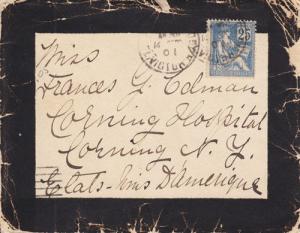 Miss
Frances G. Colman
Corning Hospital
Corning N. Y.
Etats-Unis D'Amerique
25
01